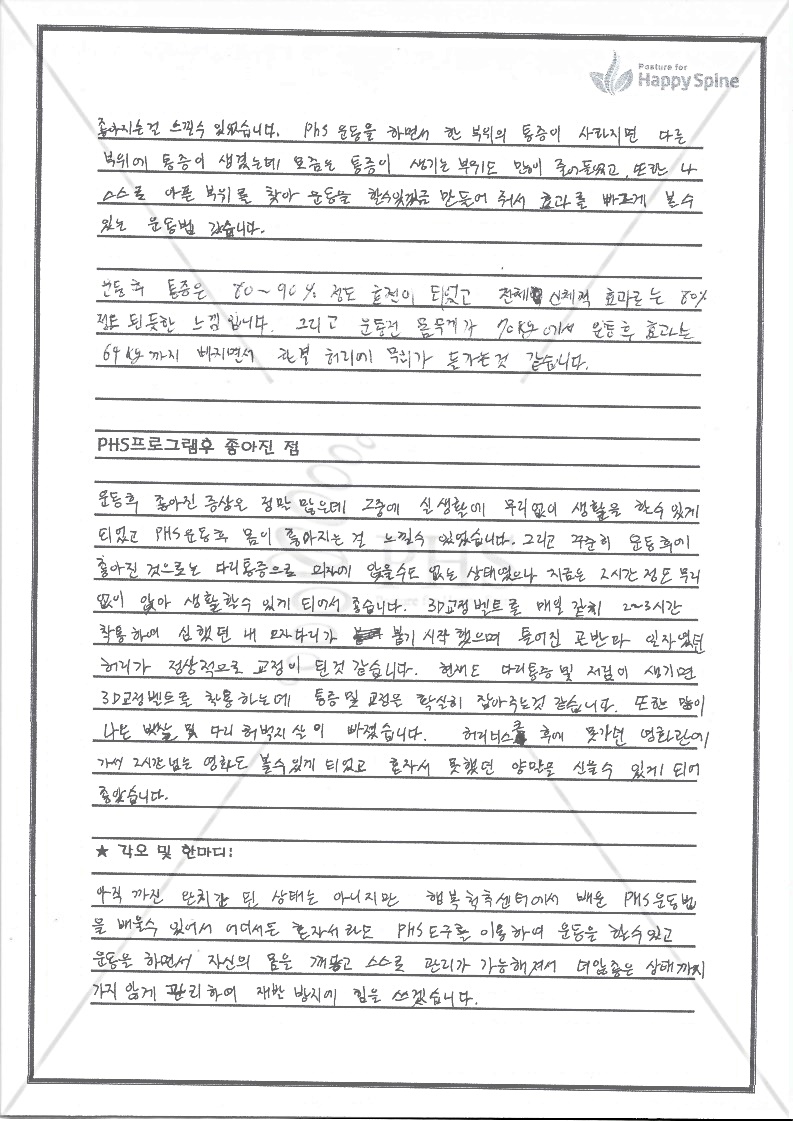 Posture for
Happy Spine
좋아지는건 느낄수 있었습니다. PHS 운동을 하면서 한 부위의 통증이 사라지면 다른
부위에 통증이 생겼는데 요즘은 통증이 생기는 부위도 많이 줄어들었고, 또한 나
스스로 아픈 부위를 찾아 운동을 할수있게끔 만들어 줘서 효과를 빠르게 볼수
있는 운동법 같습니다.
운동후 통증은 80~90% 정도 호전이 되었고 전체 신체적 효과로는 80%
정도 된듯한 느낌 입니다. 그리고 운동전 몸무게가 70kg 에서 운동후 효과는
64kg 까지 빠지면서 한결 허리에 무리가 덜가는것 같습니다.
PHS프로그램후 좋아진 점
운동후 좋아진 증상은 정말 많은데 그중에 실생활에 무리없이 생활을 할수있게
되었고 PHS운동후 몸이 좋아지는 걸 느낄수 있었습니다. 그리고 꾸준히 운동후에
좋아진 것으로는 다리통증으로 의자에 앉을수도 없는 상태였으나 지금은 2시간 정도 무리
없이 앉아 생활할수 있게 되어서 좋습니다. 3D교정벨트를 매일 같이 2~3시간
착용하여 심했던 내 오자다리가 붙기 시작했으며 틀어진 골반과 일자였던
허리가 정상적으로 교정이 된것 같습니다. 현재도 다리통증 및 저림이 생기면
3D교정벨트를 착용하는데 통증 및 교정은 확실히 잡아주는것 같습니다. 또한 많이
나온 뱃살 및 다리 허벅지 살이 빠졌습니다. 허리디스크 후에 못가던 영화관에
가서 2시간 넘는 영화도 볼수있게 되었고 혼자서 못했던 양말을 신을수 있게 되어
좋았습니다.
★ 각오 및 한마디!
아직 까진 완치가 된 상태는 아니지만 행복척추센터에서 배운 PHS운동법
을 배울수 있어서 어디서든 혼자서라도 PHS도구를 이용하여 운동을 할수있고
운동을 하면서 자신의 몸을 깨닫고 스스로 관리가 가능해져서 더않좋은 상태까지
가지 않게 관리하여 재발 방지에 힘을 쓰겠습니다.